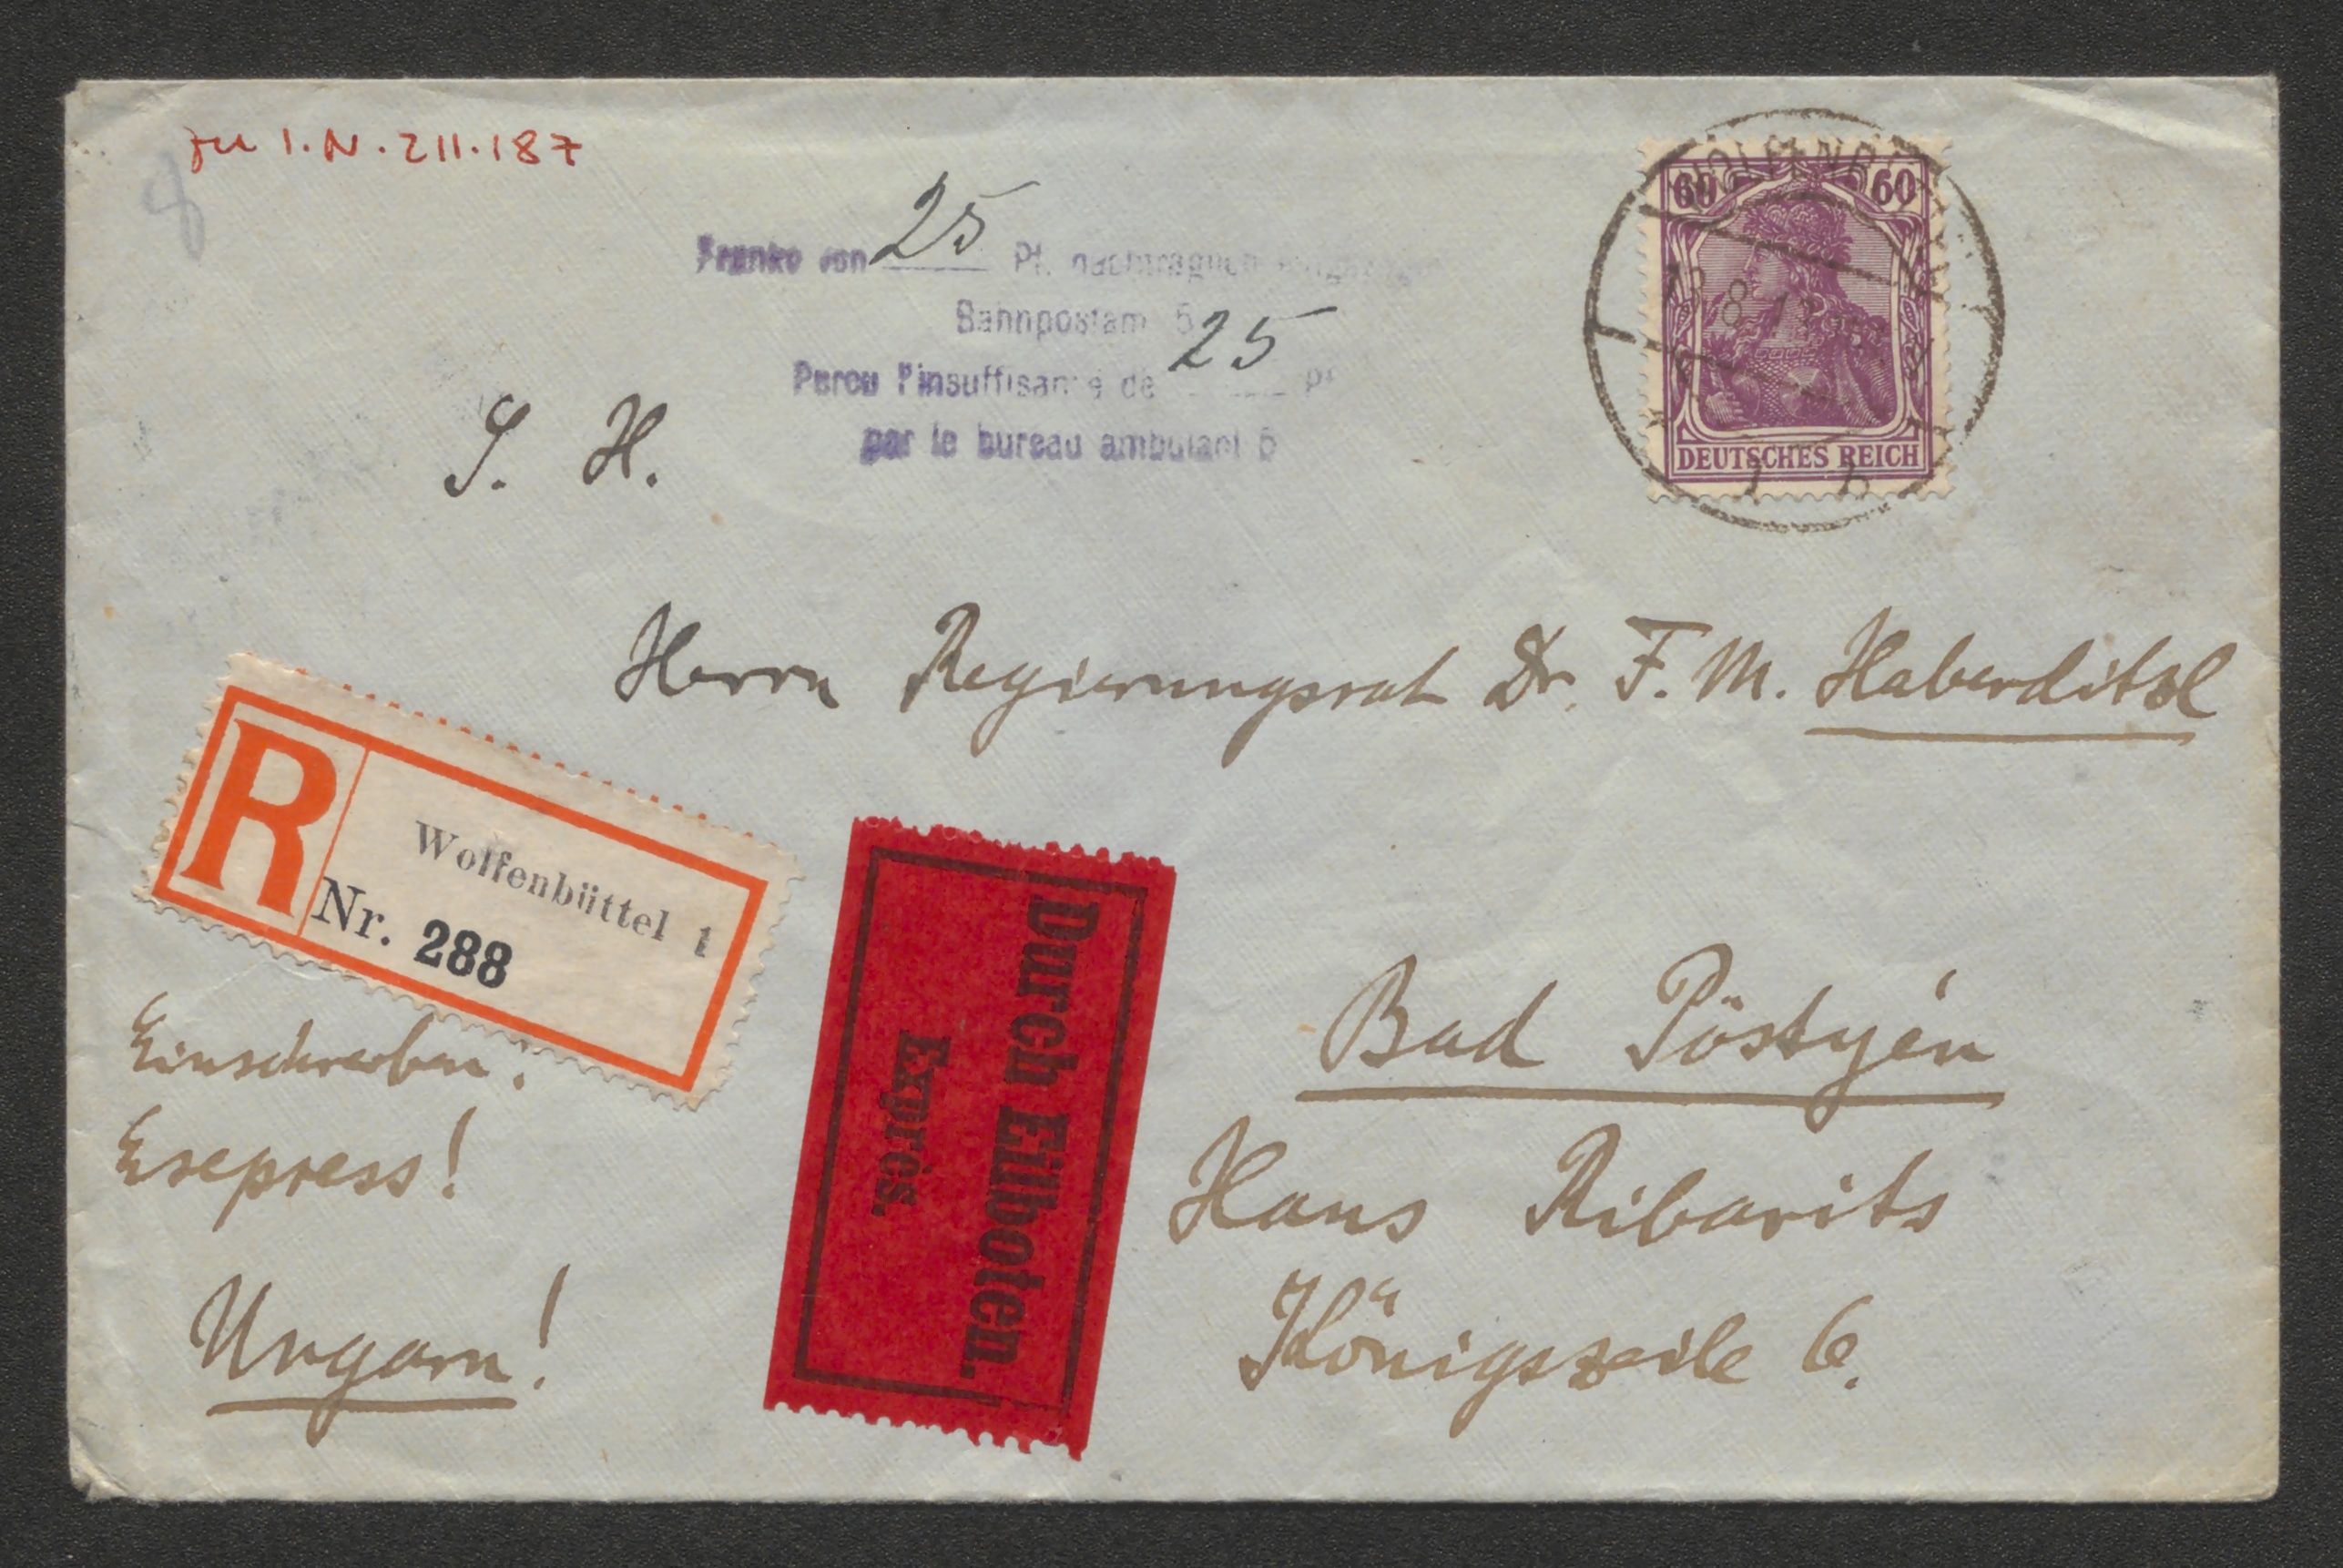 zu I.N. 211.187
8
Franko von 25 Pf. nachträglich
Bahnpostamt 5
Percu l'insuffisance de 25 Pf
par le bureau ambulant 5
60 60
DEUTSCHES REICH
S. H.
Herrn Regierungsrat Dr. F. M. Haberditzl
R Wolfenbüttel 1
Nr. 288
Durch Eilboten.
Exprès.
Einschreiben!
Exepress!
Ungarn!
Bad Pöstyén
Haus Ribarits
Königszeile 6.